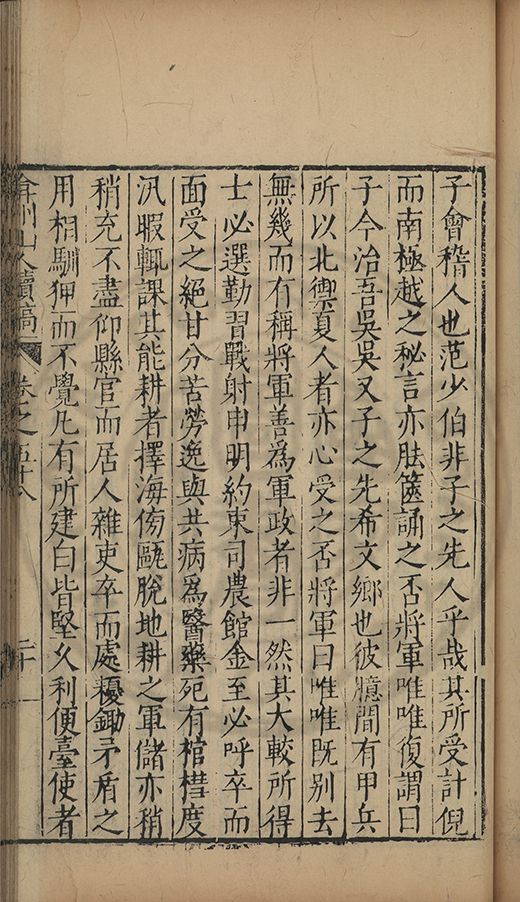 子會稽人也范少伯非子之先人乎哉其所受計倪
而南極越之秘言亦胠篋誦之否將軍唯唯復謂曰
子今治吾吳吳又子之先希文鄉也彼臆間有甲兵
所以北禦夏人者亦心受之否將軍曰唯唯既別去
無幾而有稱將軍善為軍政者非一然其大較所得
士必選勤習戰射申明約束司農館金至必呼卒而
面受之絕甘分苦勞逸與共病為醫藥死有棺槥度
汛暇輒課其能耕者擇海傍甌脫地耕之軍儲亦稍
稍充不盡仰縣官而居人雜吏卒而處耰鋤矛盾之
用相馴狎而不覺凡有所建白皆堅久利便臺使者
弇州山人續稿 卷之五十八 二十